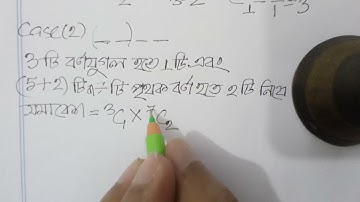 Case(2) (_ _) _ _
3টি বর্ণযুগল হতে 1টি এবং
(5+2) টি বা 7 টি পৃথক বর্ণ হতে 2 টি নিয়ে
সমাবেশ = ³C₁ × ⁷C₂